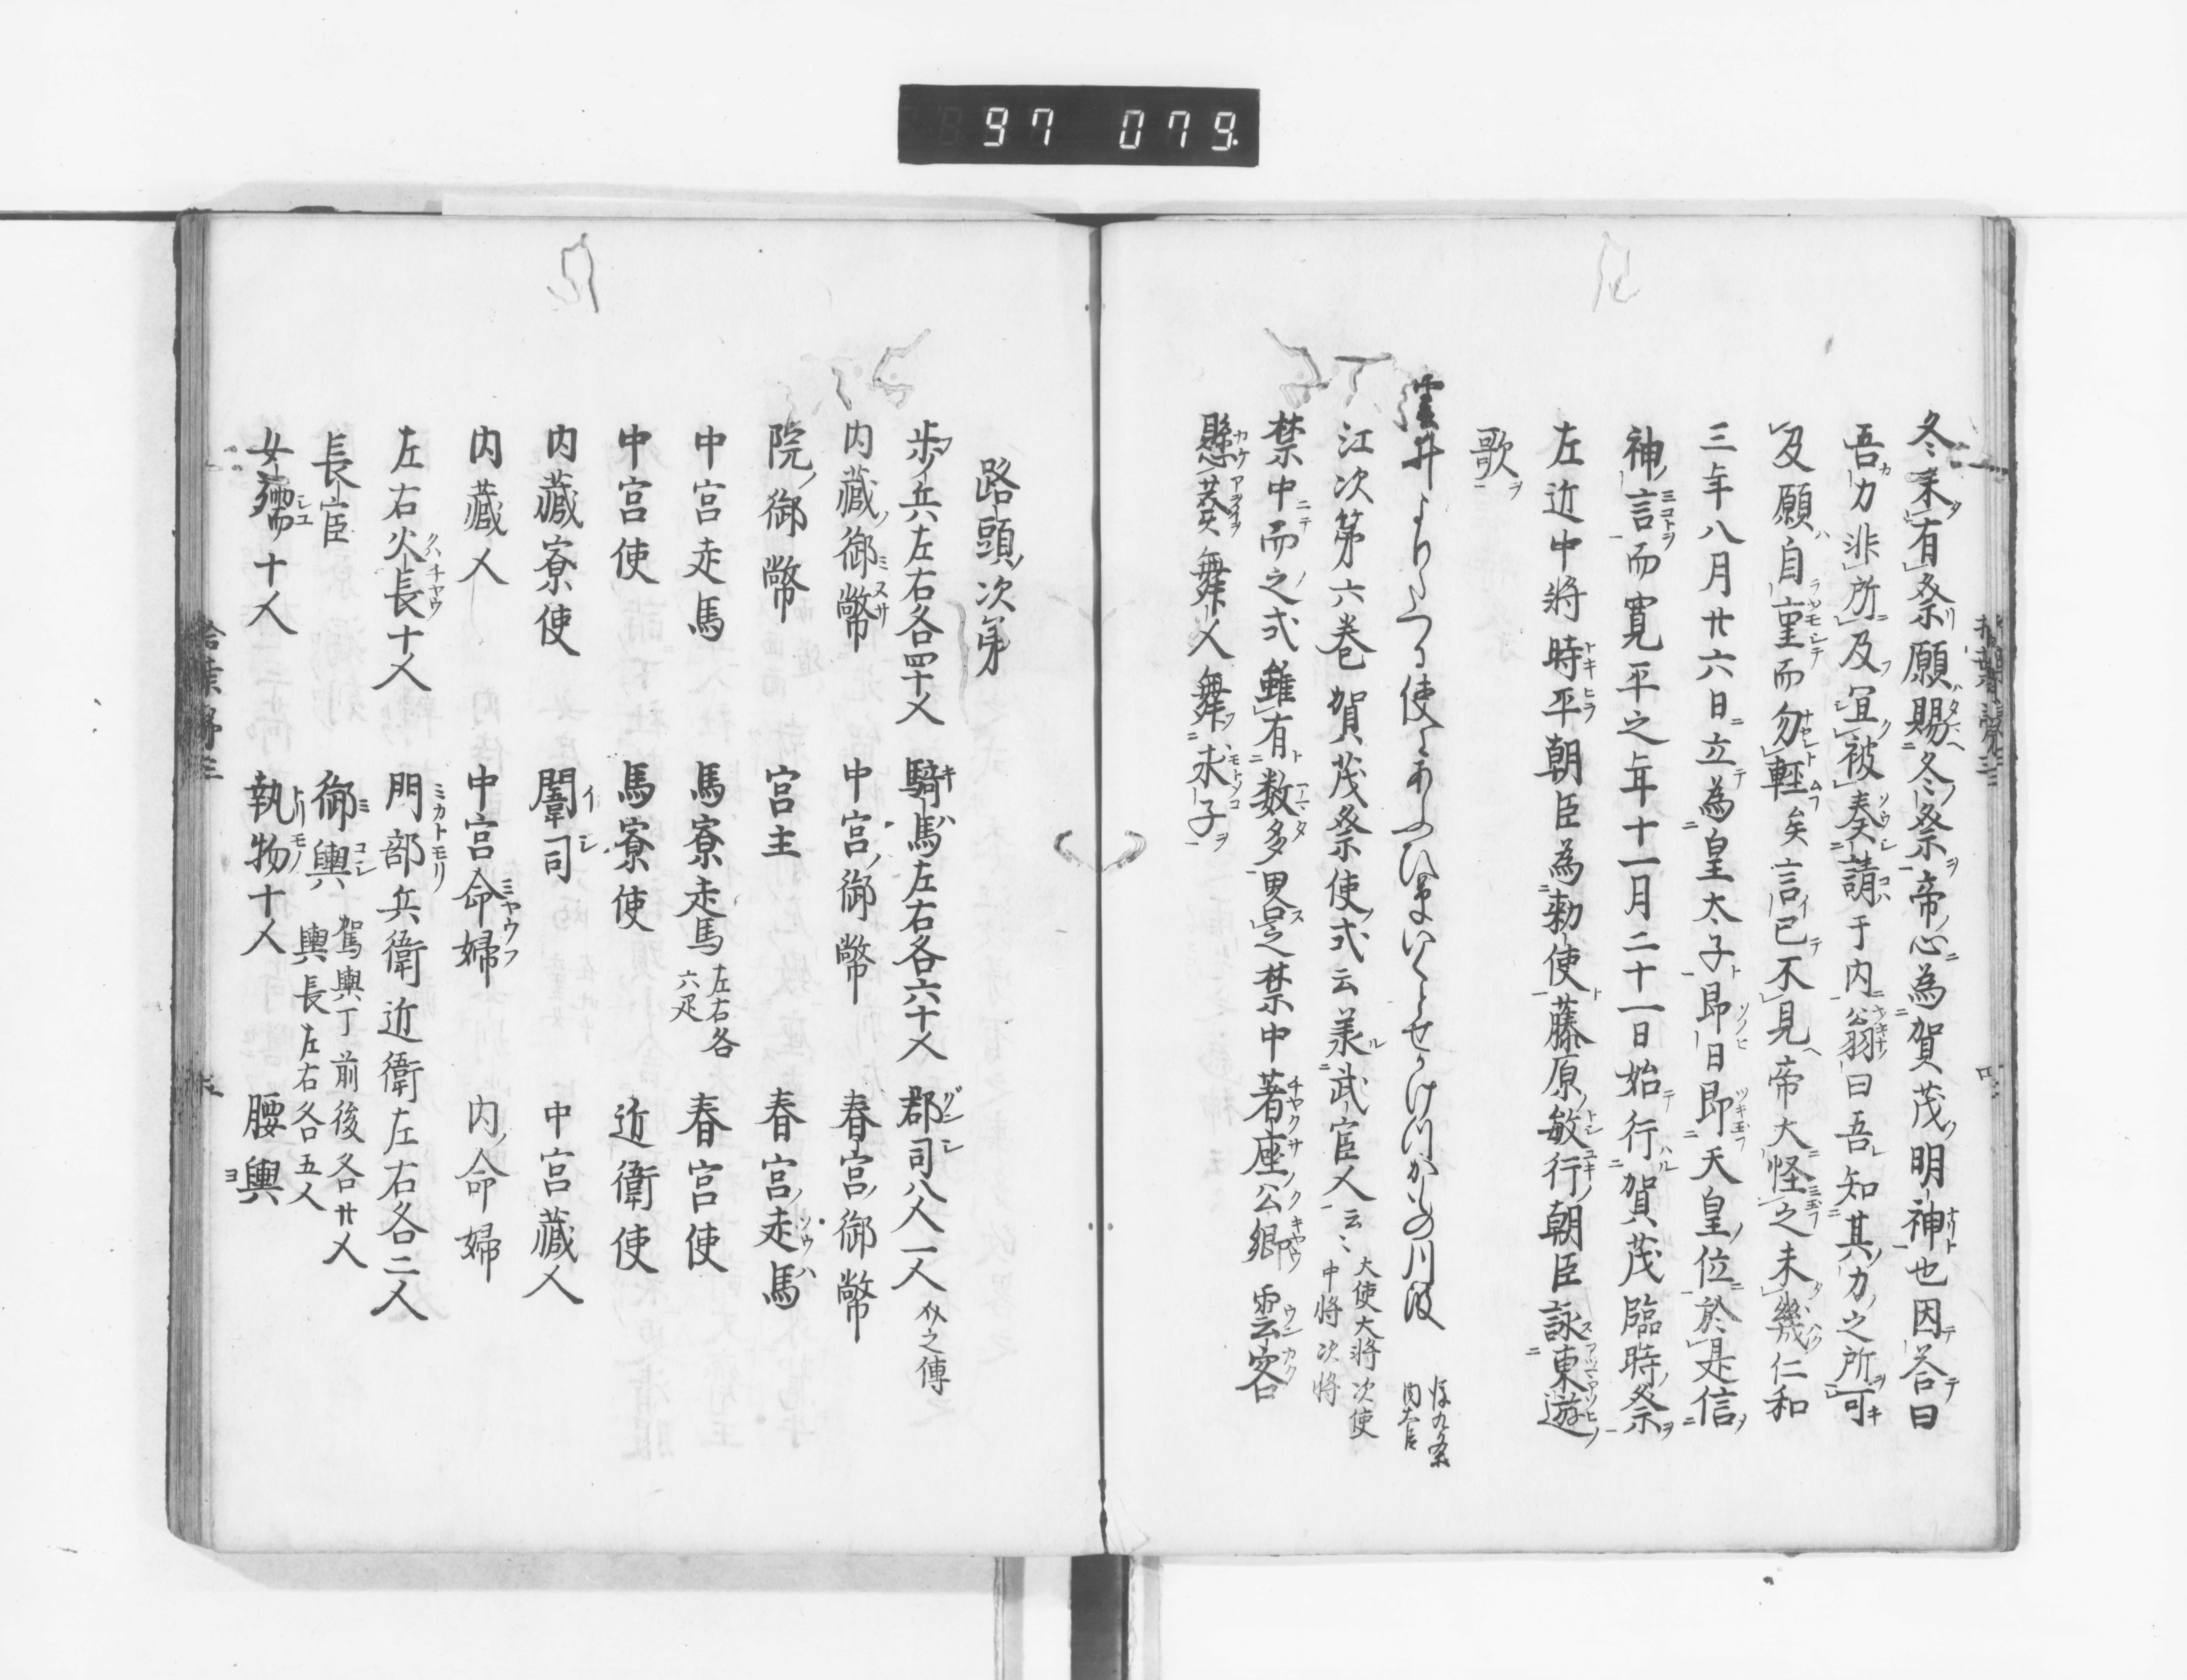 97 079
冬未有祭願賜冬祭帝心為賀茂明神也因答曰
吾力非所及宜被奏請于内翁曰吾知其力之所可
及願自重而勿軽矣言已不見帝大怪之未幾仁和
三年八月廿六日立為皇太子即日即天皇位於是信
神言而寛平之年十一月二十一日始行賀茂臨時祭
左近中将時平朝臣為勅使藤原敏行朝臣詠東遊
歌
江次第六巻賀茂祭使式云兼武官人云〻大使大将次使中将次将
禁中而之式雖有数多畧之禁中著座公卿雲客
懸葵舞人舞求子
路頭次第
歩兵左右各四十人 騎馬左右各六十人 郡司八人一人
内藏御幣 中宮御幣 春宮御幣
院御幣 宮主 春宮走馬
中宮走馬 馬寮走馬左右各六疋 春宮使
中宮使 馬寮使 近衛使
内藏寮使 闈司 中宮藏人
内藏人 中宮命婦 内命婦
左右火長十人 門部兵衛近衛左右各二人
長官 御輿 駕輿丁前後各廿人 輿長左右各五人
女孺十人 執物十人 腰輿